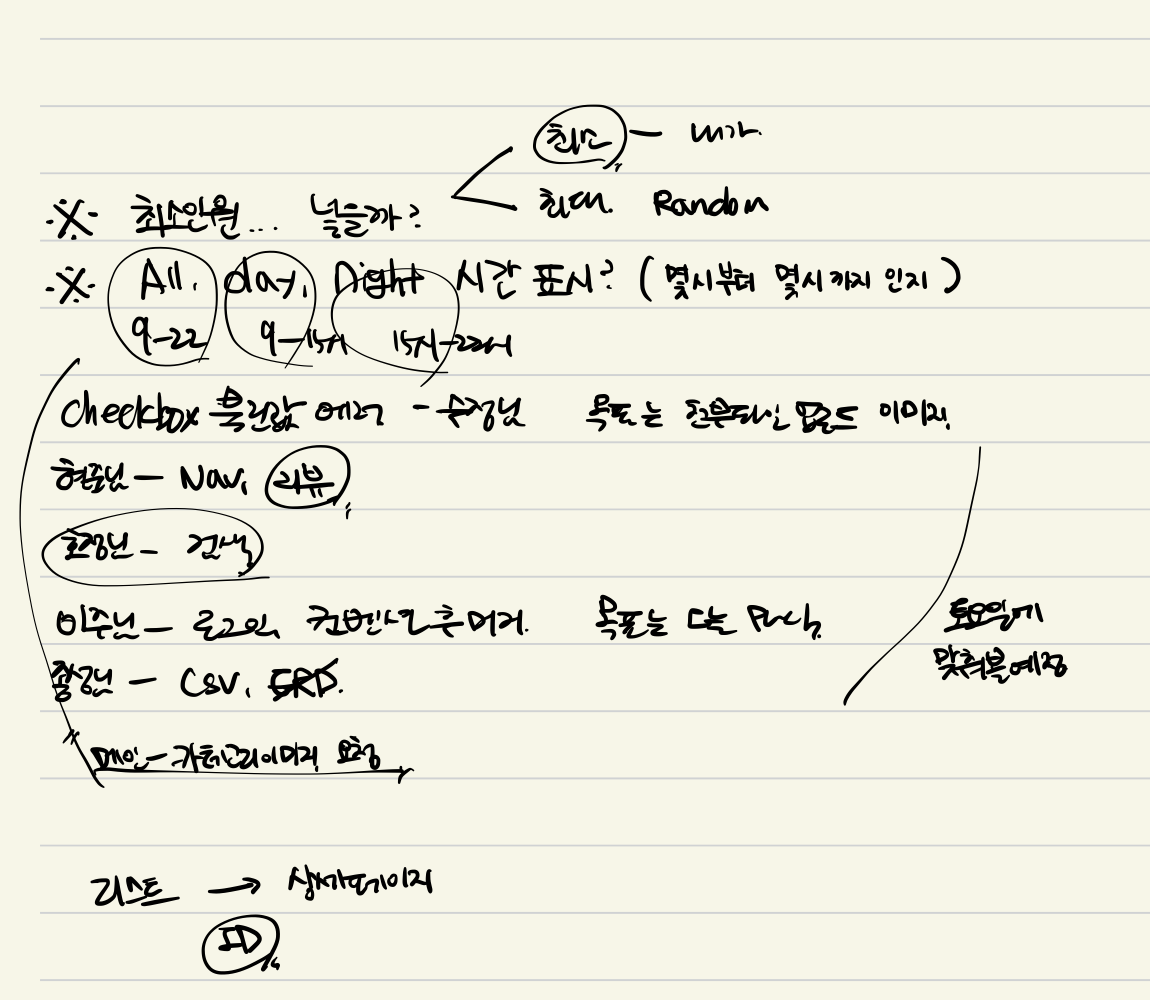 최소 — 내가.
※ 최소인원... 넣을까?
최대. Random
※ All, day, night 시간 표시? (몇시부터 몇시까지 인지)
9-22 9-15시 15시-22시
checkbox 불린값 에러 - 수정님 목표는 전부다인 업로드 이미지.
현준님 — Nav, 리뷰
효정님 — 검색,
이주님 — 로그인, 컨벤션 추 머지. 목표는 다음
토요일에
맞춰볼예정
— CSV, ERD.
메인 — 카테고리이미지 요청
리스트 → 상세페이지
ID